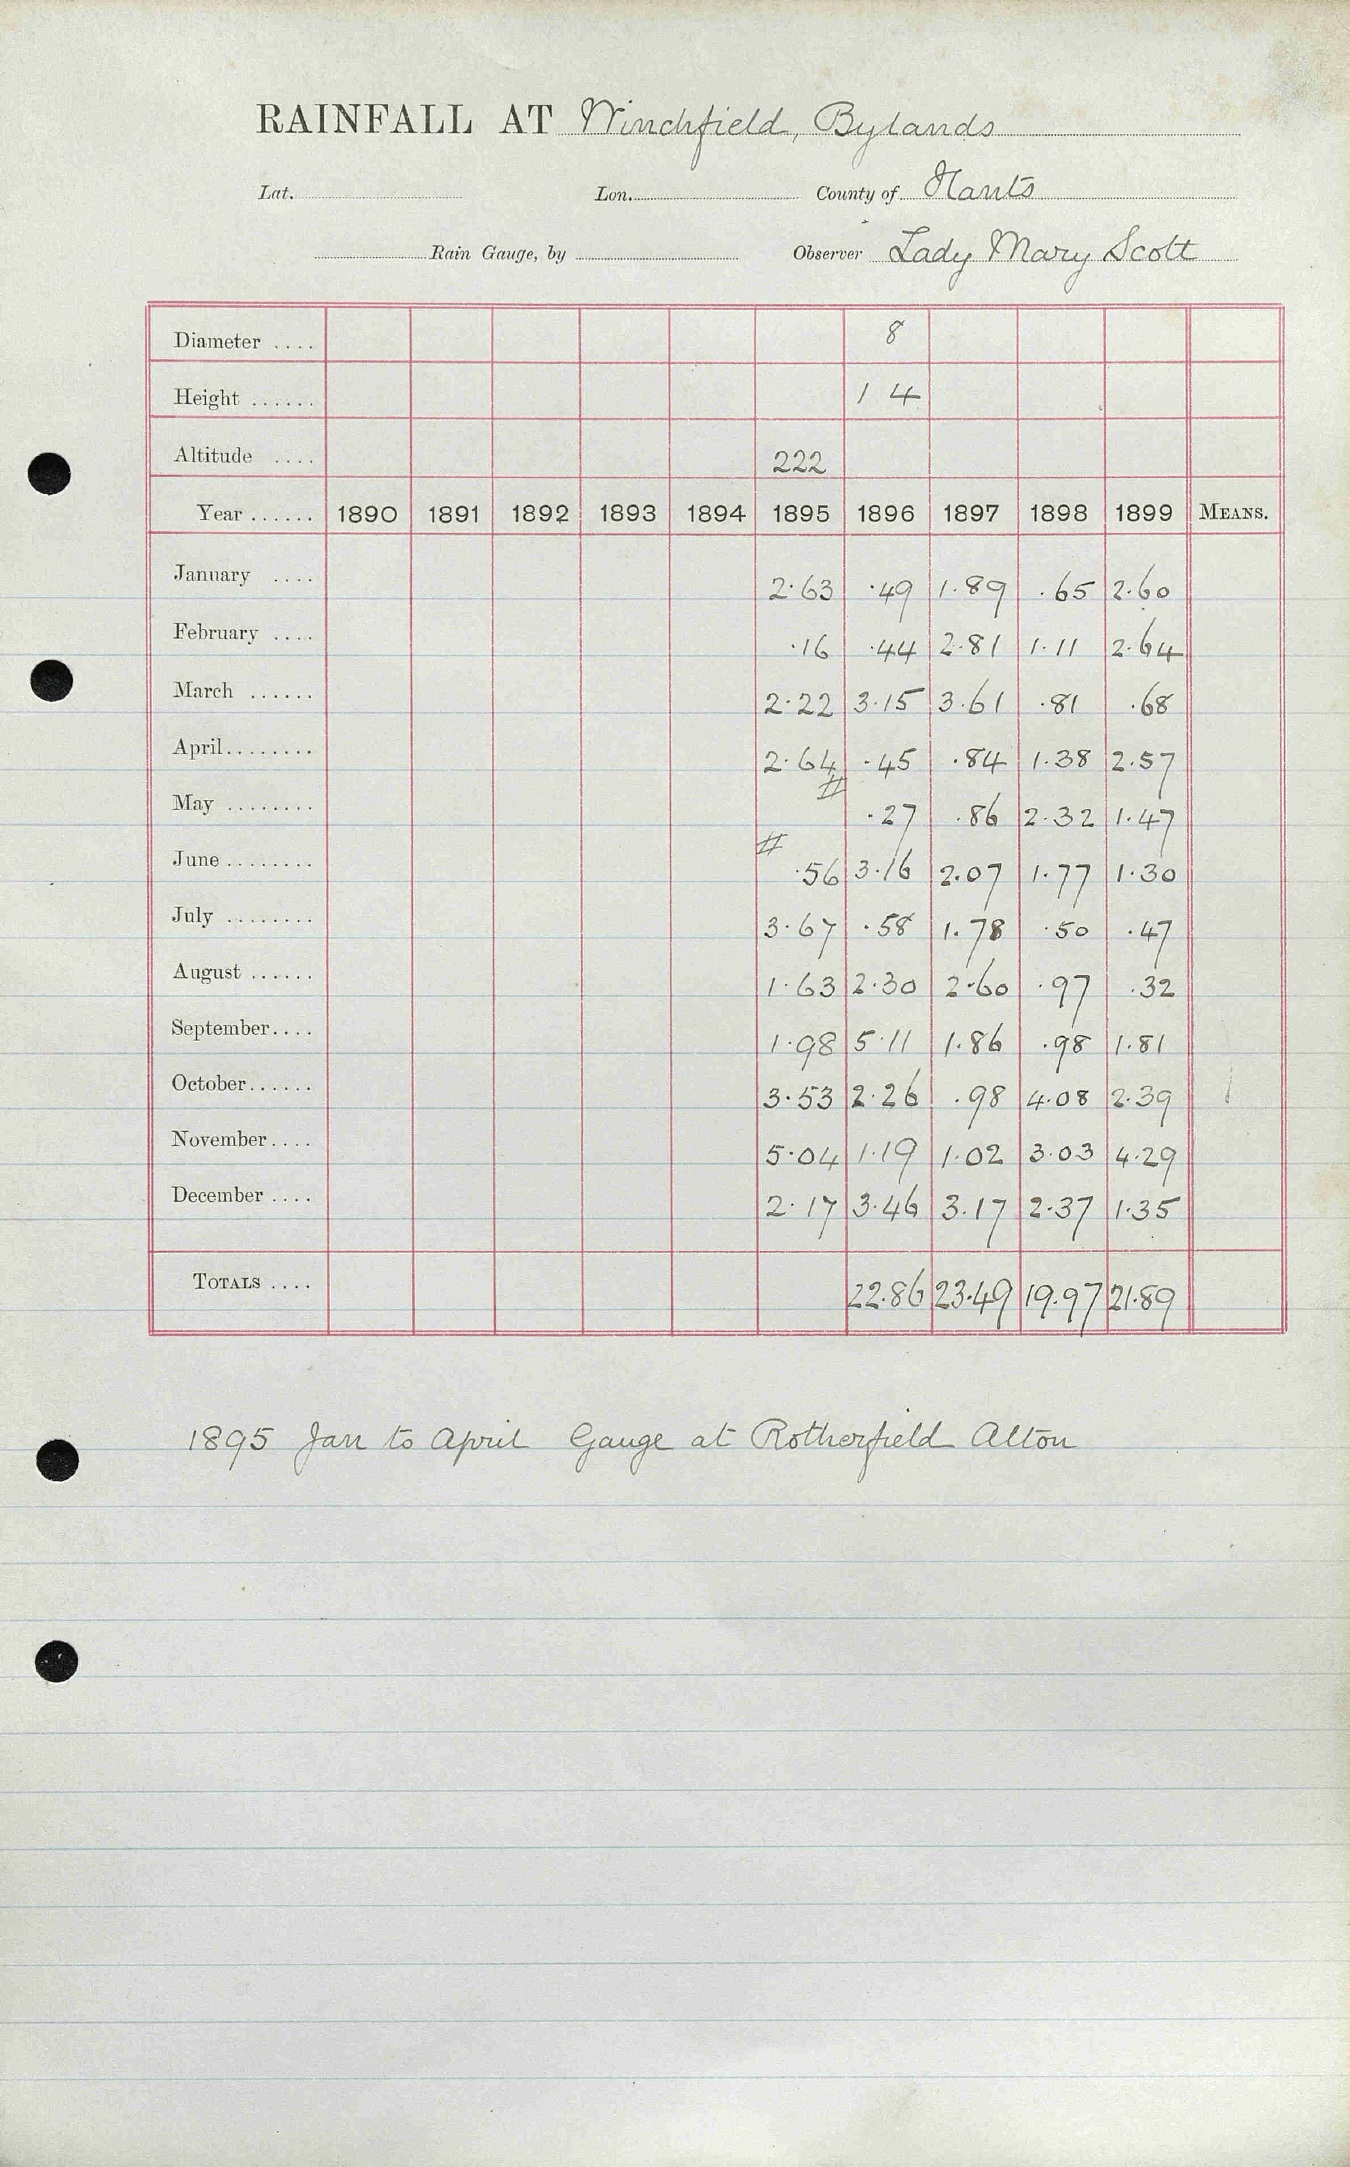 RAINFALL AT Winchfield, Bylands
Lat. Lon. County of Hants
Rain Gauge, by Observer Lady Mary Scott
Diameter .... 8
Height ...... 1 4
Altitude .... 222
Year ...... 1890 1891 1892 1893 1894 1895 1896 1897 1898 1899 MEANS.
January .... 2.63 .49 1.89 .65 2.60
February .... .16 .44 2.81 1.11 2.64
March ...... 2.22 3.15 3.61 .81 .68
April ........ 2.64 .45 .84 1.38 2.57
#
May ........ .27 .86 2.32 1.47
#
June ........ .56 3.16 2.07 1.77 1.30
July ........ 3.67 .58 1.78 .50 .47
August ...... 1.63 2.30 2.60 .97 .32
September .... 1.98 5.11 1.86 .98 1.81
October ...... 3.53 2.26 .98 4.08 2.39
November .... 5.04 1.19 1.02 3.03 4.29
December .... 2.17 3.46 3.17 2.37 1.35
TOTALS .... 22.86 23.49 19.97 21.89
1895 Jan to April Gauge at Rotherfield Alton